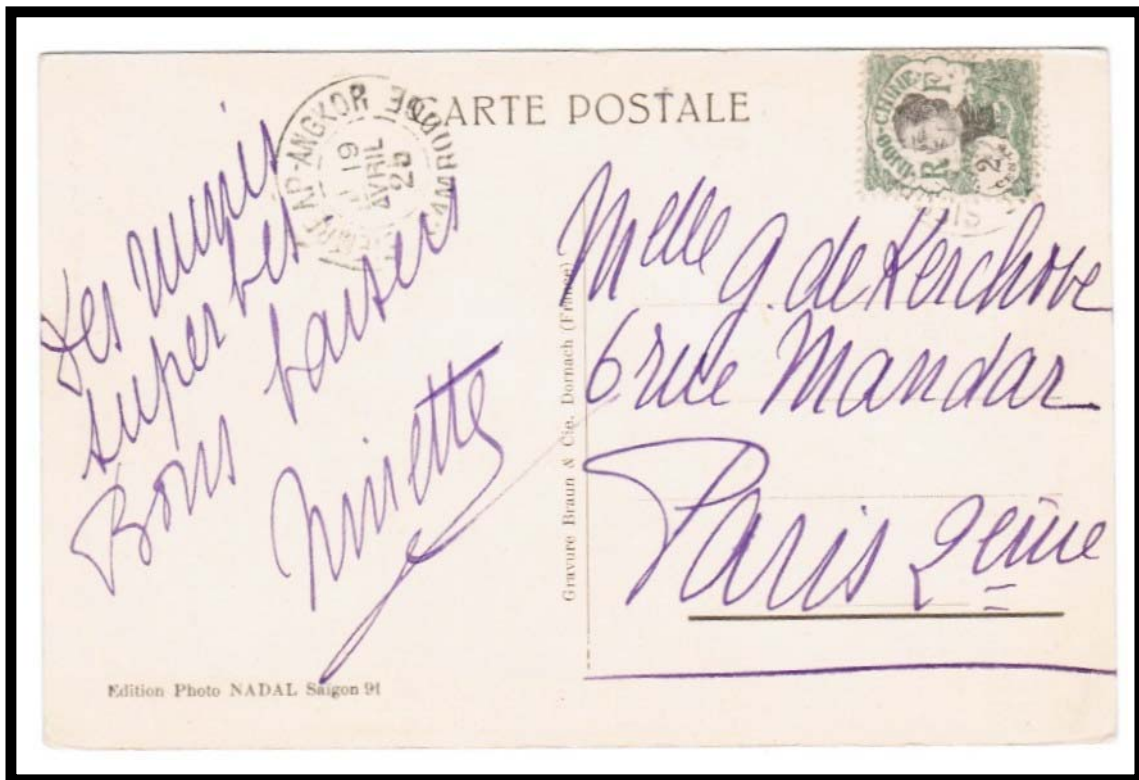 CARTE POSTALE
AP-ANGKOR
19
AVRIL
INDO-CHINE
R F
2
Les
superbes
Bons baisers
Ninette
Melle G. de Kerchove
6 rue Mandar
Paris 2eme
Gravure Braun & Cie, Dornach (France)
Edition Photo NADAL Saigon 91